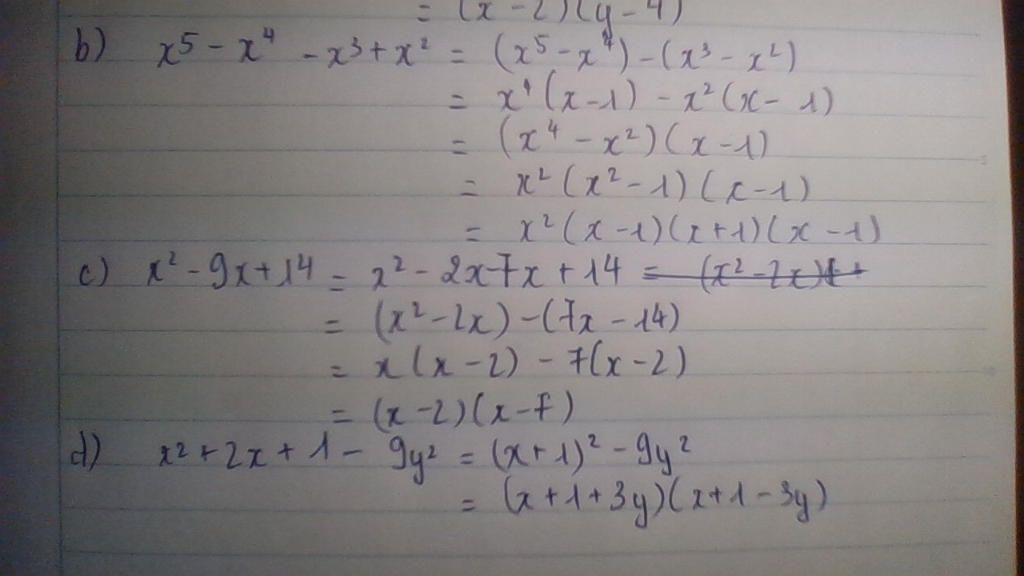 = (x - 2)(y - 4)
b) x⁵ - x⁴ - x³ + x² = (x⁵ - x⁴) - (x³ - x²)
= x⁴(x - 1) - x²(x - 1)
= (x⁴ - x²)(x - 1)
= x²(x² - 1)(x - 1)
= x²(x - 1)(x + 1)(x - 1)
c) x² - 9x + 14 = x² - 2x - 7x + 14 = (x² - 2x)( +
= (x² - 2x) - (7x - 14)
= x(x - 2) - 7(x - 2)
= (x - 2)(x - 7)
d) x² + 2x + 1 - 9y² = (x + 1)² - 9y²
= (x + 1 + 3y)(x + 1 - 3y)